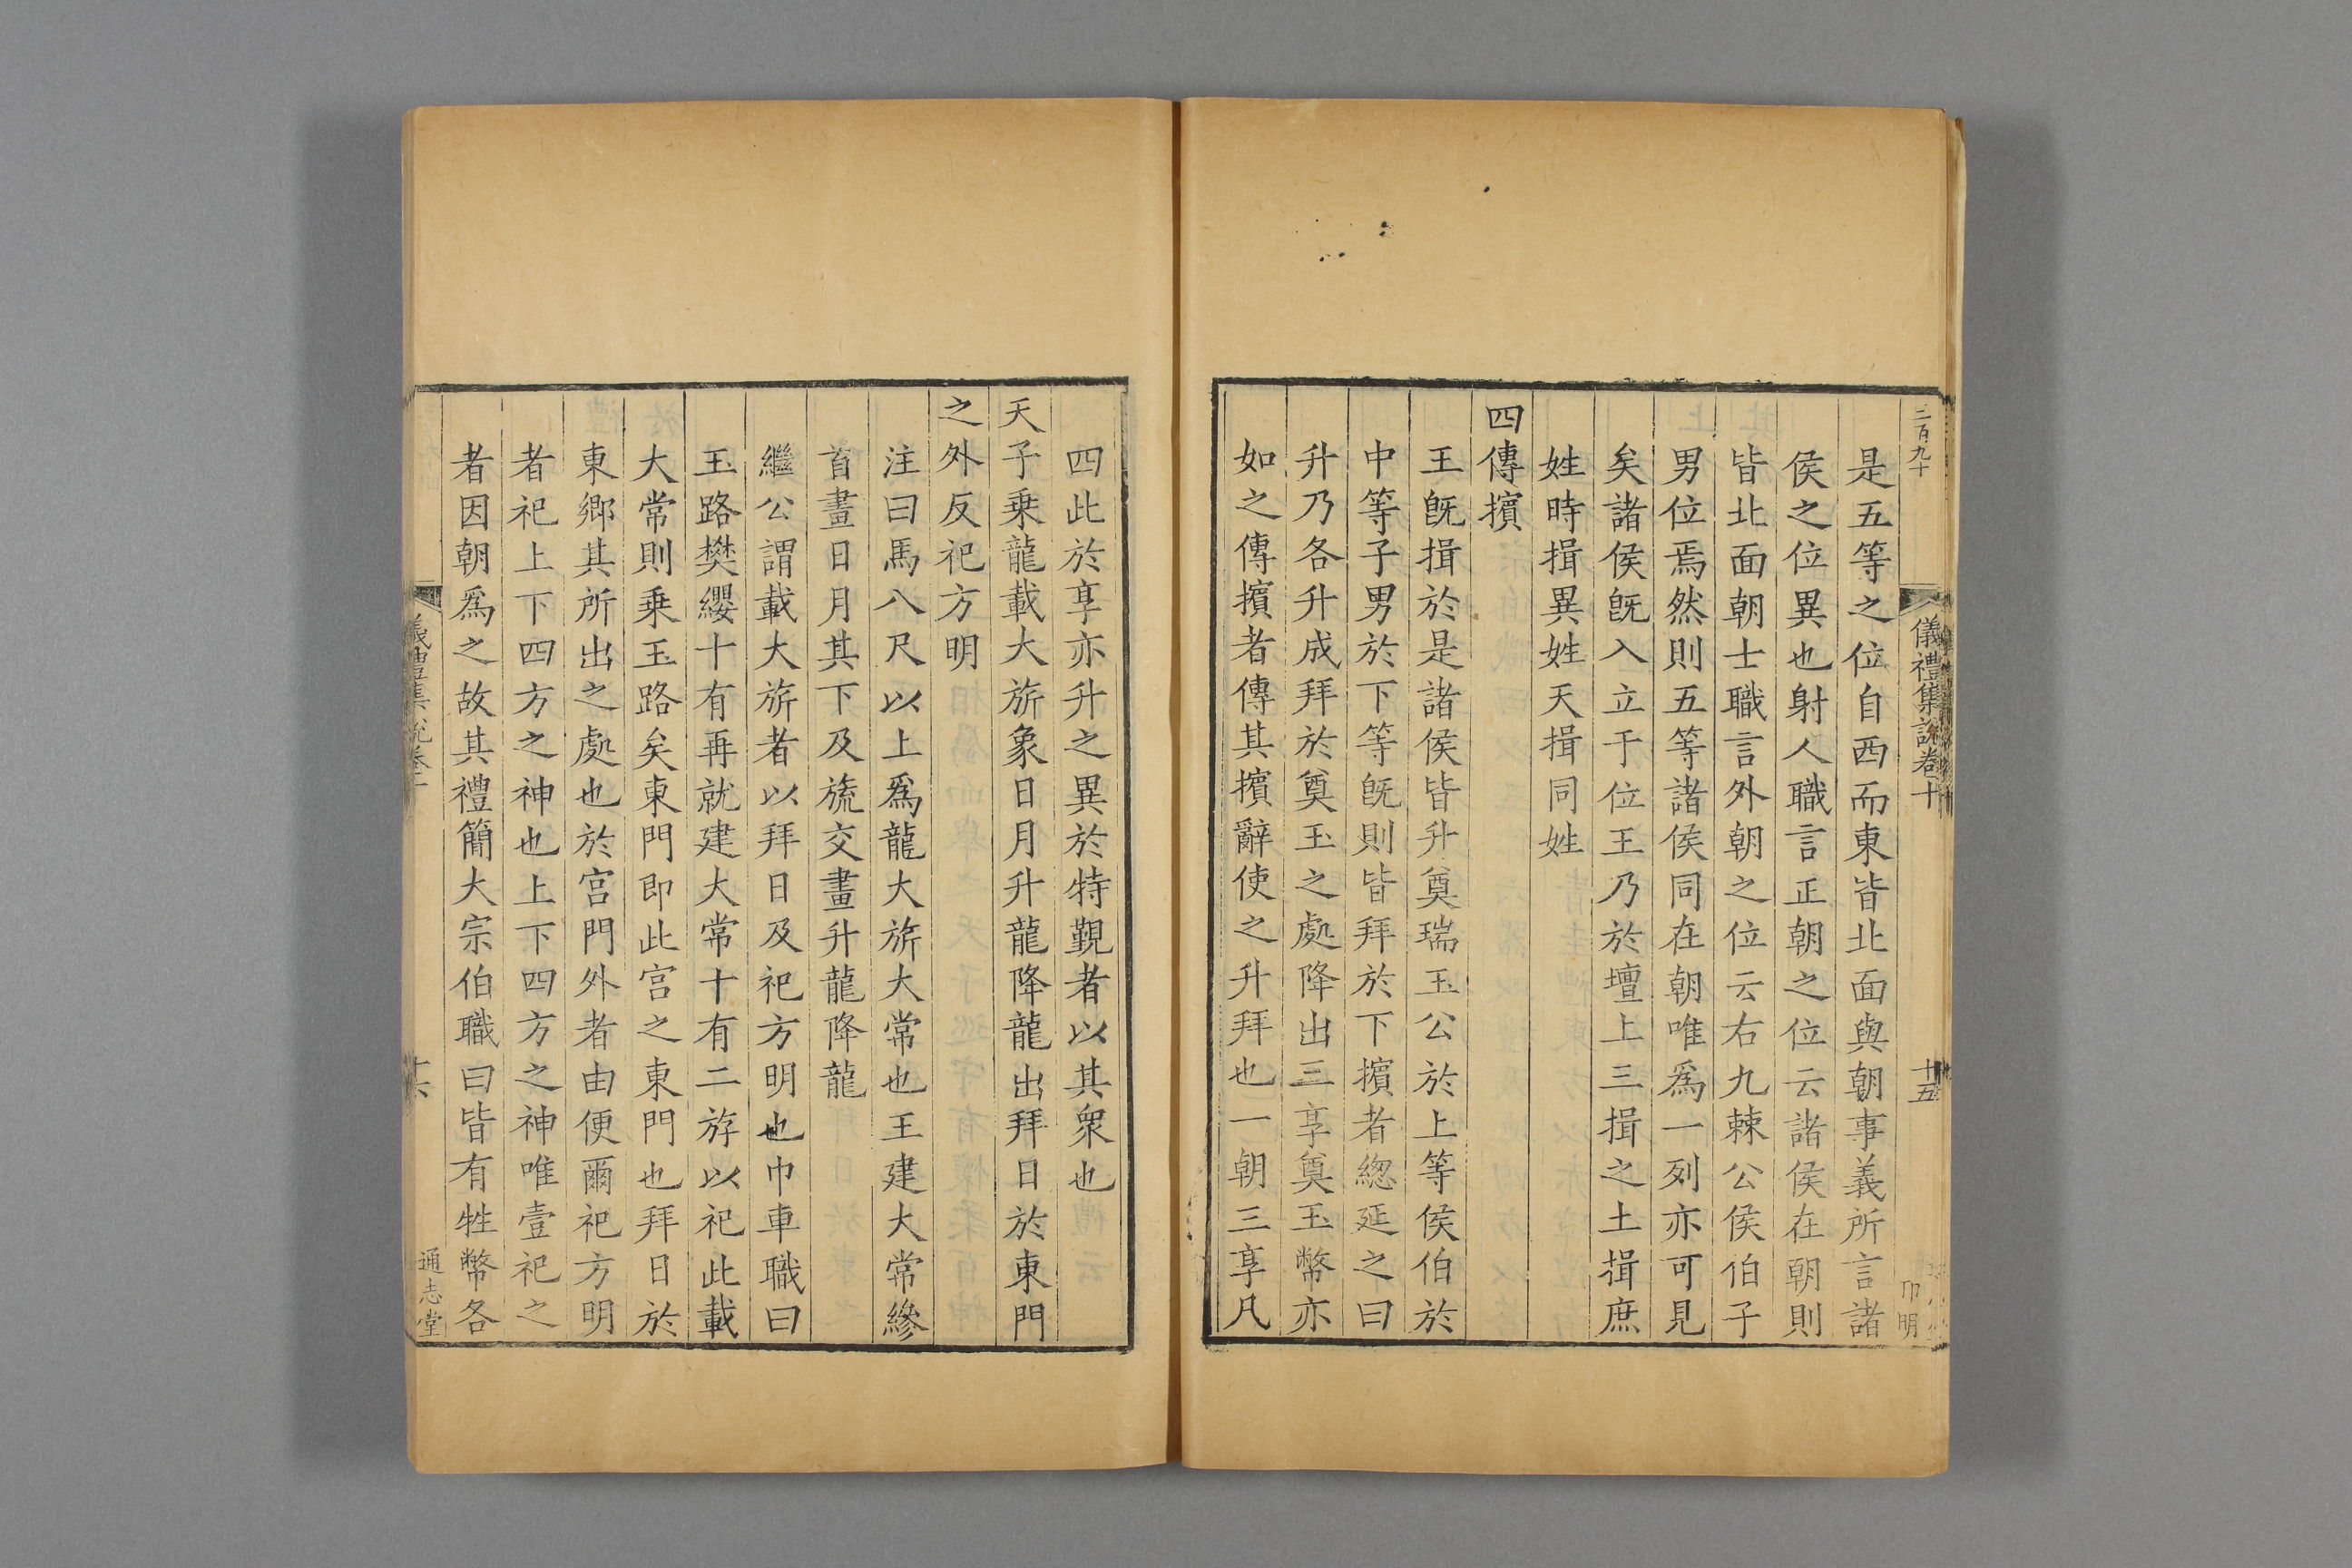 二百九十
儀禮集說卷十
十五
是五等之位自西而東皆北面與朝事義所言諸
侯之位異也射人職言正朝之位云諸侯在朝則
皆北面朝士職言外朝之位云右九棘公侯伯子
男位焉然則五等諸侯同在朝唯爲一列亦可見
矣諸侯旣入立于位王乃於壇上三揖之土揖庶
姓時揖異姓天揖同姓
四傳擯
王旣揖於是諸侯皆升奠瑞玉公於上等侯伯於
中等子男於下等旣則皆拜於下擯者緫延之曰
升乃各升成拜於奠玉之處降出三享奠玉幣亦
如之傳擯者傳其擯辭使之升拜也一朝三享凡
四此於享亦升之異於特覲者以其衆也
天子乗龍載大旂象日月升龍降龍出拜日於東門
之外反祀方明
注曰馬八尺以上爲龍大旂大常也王建大常縿
首畫日月其下及旒交畫升龍降龍
繼公謂載大旂者以拜日及祀方明也巾車職曰
玉路樊纓十有再就建大常十有二斿以祀此載
大常則乗玉路矣東門即此宫之東門也拜日於
東鄉其所出之處也於宫門外者由便爾祀方明
者祀上下四方之神也上下四方之神唯壹祀之
者因朝爲之故其禮簡大宗伯職曰皆有牲幣各
儀禮集說卷十
十六
通志堂